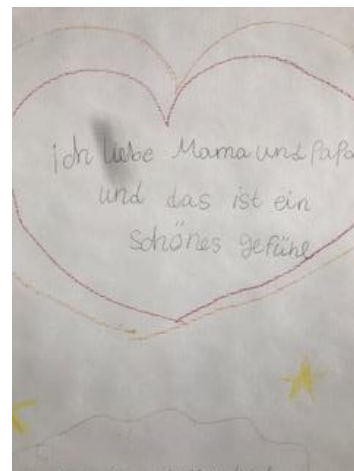 ich liebe Mama und Papa
und das ist ein
schönes gefühl